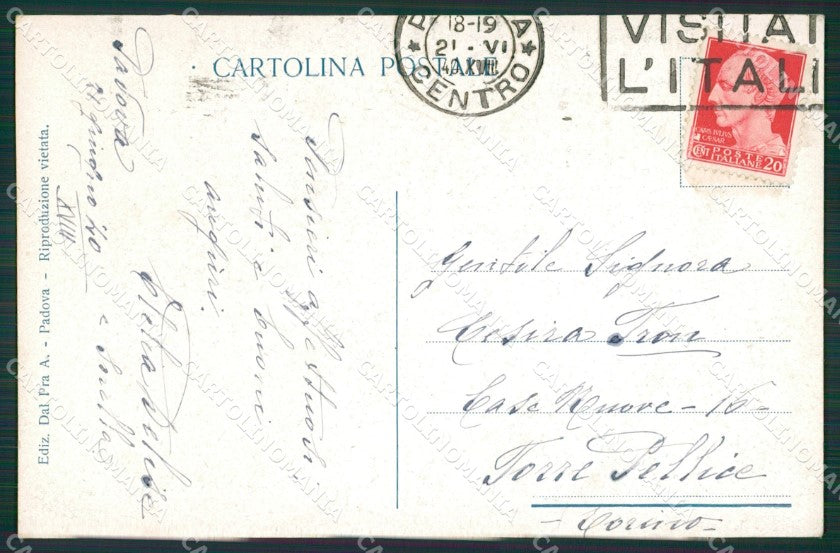 CARTOLINA POSTALE
18-19
21 · VI
40.XVIII
CENTRO
VISITA
L'ITALI
CAIVS IVLIVS
CAESAR
CENT POSTE
ITALIANE 20
Ediz. Dal Pra A. - Padova - Riproduzione vietata.
Padova
21 giugno 40
XVIII
Pensieri affettuosi
Saluti e buoni
auguri.
Gentile Signora
Cesira Tron
Case Nuove - 16 -
Torre Pellice
- Torino -
CARTOLINOMANIA